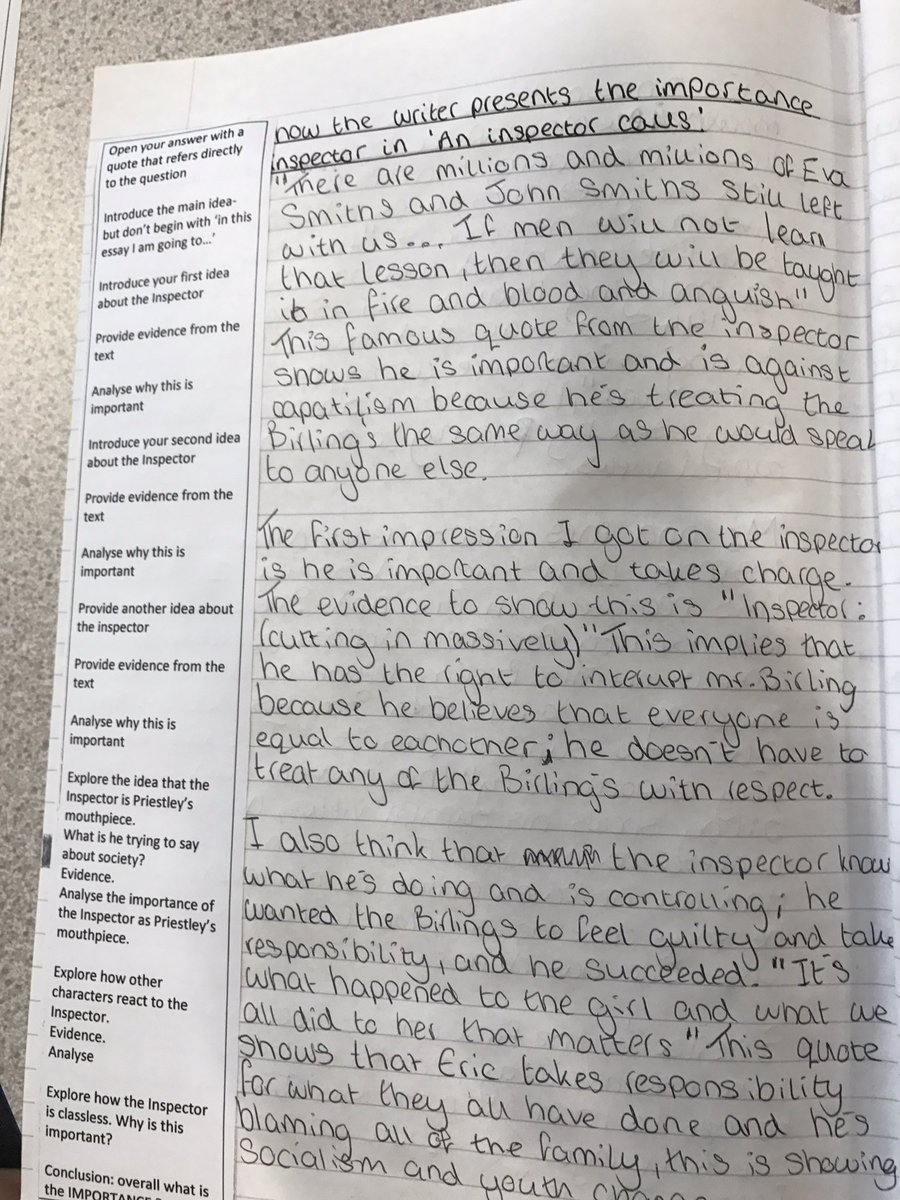 Open your answer with a
quote that refers directly
to the question
Introduce the main idea-
but don't begin with 'in this
essay I am going to...'
Introduce your first idea
about the Inspector
Provide evidence from the
text
Analyse why this is
important
Introduce your second idea
about the Inspector
Provide evidence from the
text
Analyse why this is
important
Provide another idea about
the inspector
Provide evidence from the
text
Analyse why this is
important
Explore the idea that the
Inspector is Priestley's
mouthpiece.
What is he trying to say
about society?
Evidence.
Analyse the importance of
the Inspector as Priestley's
mouthpiece.
Explore how other
characters react to the
Inspector.
Evidence.
Analyse
Explore how the Inspector
is classless. Why is this
important?
Conclusion: overall what is
the IMPORTANCE
how the writer presents the importance
inspector in 'An inspector calls'
"There are millions and millions of Eva
Smiths and John Smiths still left
with us... If men will not learn
that lesson, then they will be taught
it in fire and blood and anguish"
This famous quote from the inspector
shows he is important and is against
capatilism because he's treating the
Birlings the same way as he would speak
to anyone else.
The first impression I got on the inspector
is he is important and takes charge.
The evidence to show this is "Inspector:
(cutting in massively)" This implies that
he has the right to interupt mr. Birling
because he believes that everyone is
equal to eachother; he doesn't have to
treat any of the Birling's with respect.
I also think that the inspector know
what he's doing and is controlling; he
wanted the Birlings to feel guilty and take
responsibility, and he succeeded. "It's
what happened to the girl and what we
all did to her that matters" This quote
shows that Eric takes responsibility
for what they all have done and he's
blaming all of the family, this is showing
Socialism and youth